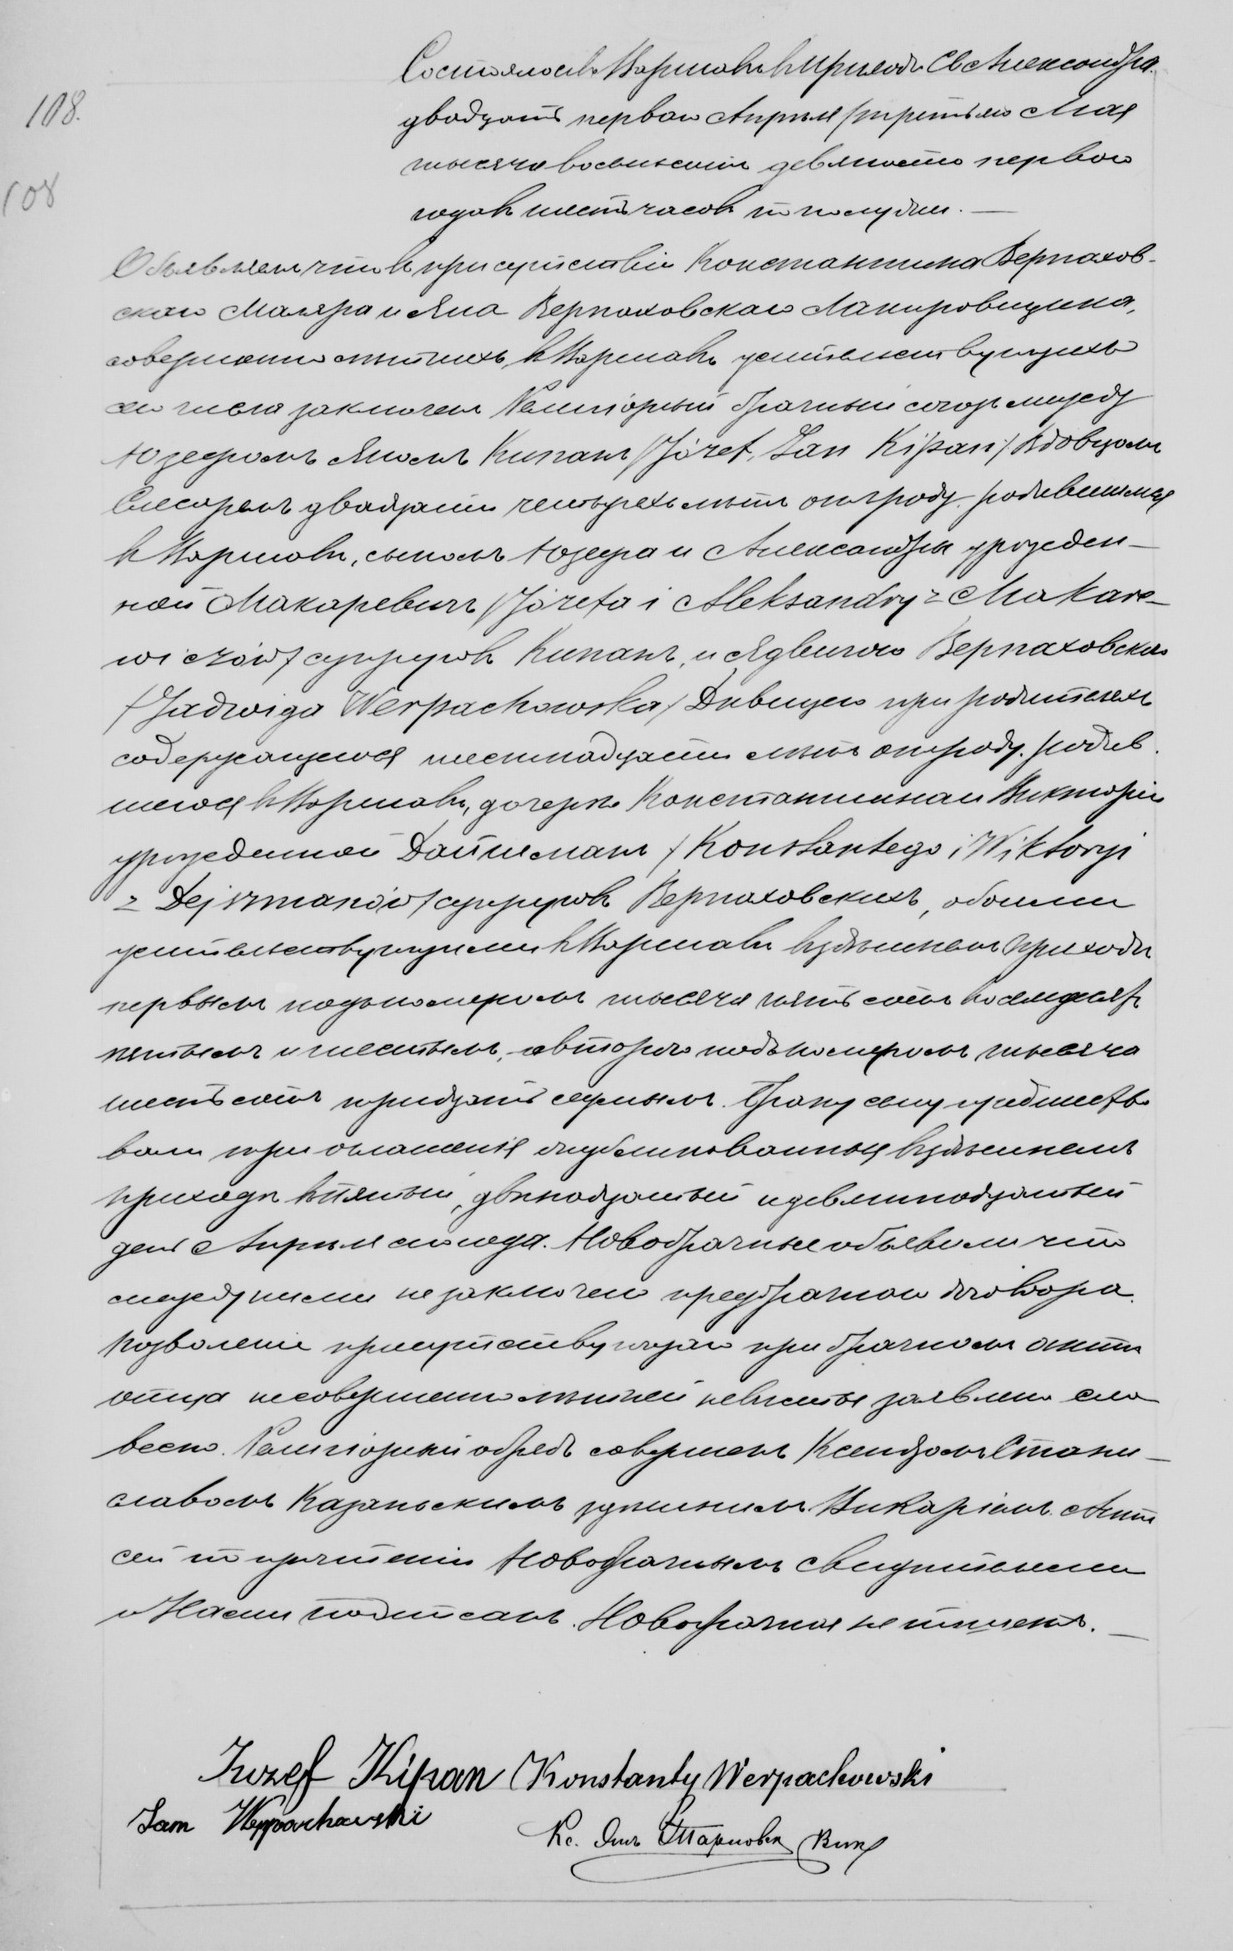 108.
108
Состоялось в Варшаве в приходе Св Александра
двадцать первого Апреля /третьяго Мая
тысяча восемьсот девяносто первого
года в шесть часов по полудни. —
Объявляем что в присутствии Константина Верпахов-
скаго Маляра и Яна Верпаховскаго Лакировщика,
совершеннолетних, в Варшаве жительствующих
сего числа заключен Религіорный брачный союз между
Юзефомъ Яномъ Кипанъ /Józef, Jan Kipan/ Вдовцомъ
Слесаремъ двадцати четырехъ летъ отъ роду родившимся
в Варшаве, сыномъ Юзефа и Александры урожден-
ной Макаревичъ /Józefa i Aleksandry z Makare-
wiczów/ супруговъ Кипанъ, и Ядвигою Верпаховскою
/Jadwiga Werpachowska/ Девицею при родителяхъ
содержащеюся шестнадцати летъ отъ роду родив
шеюся в Варшаве, дочерью Константина и Викторіи
урожденной Дайшманъ /Konstantego i Wiktoryi
z Dejszmanów/ супруговъ Верпаховскихъ, обоими
жительствующими в Варшаве в здешнемъ приходе
первымъ подъ номеромъ тысяча пятьсотъ восемьдесятъ
пятымъ и шестымъ, а второю подъ номеромъ тысяча
шестьсотъ тридцать седьмымъ. Браку сему предшество
вали три оглашенія опубликованныя в здешнемъ
приходе в пятый, двенадцатый и девятнадцатый
день Апреля сего года. Новобрачные объявили что
между ними не заключено предбрачнаго договора.
Позволеніе присутствующаго при брачномъ акте
отца несовершеннолетней невесты заявлено сло
весно. Религіорный обрядъ совершенъ Ксендзомъ Стани-
славомъ Казаньскимъ здешнимъ Викаріемъ. Актъ
сей по прочтеніи Новобрачнымъ Свидетелями
и Нами подписанъ. Новобрачная не пишетъ. —
Iuzef Kipan Konstanty Werpachowski
Jam Werpachowski Кс. Янъ Вик